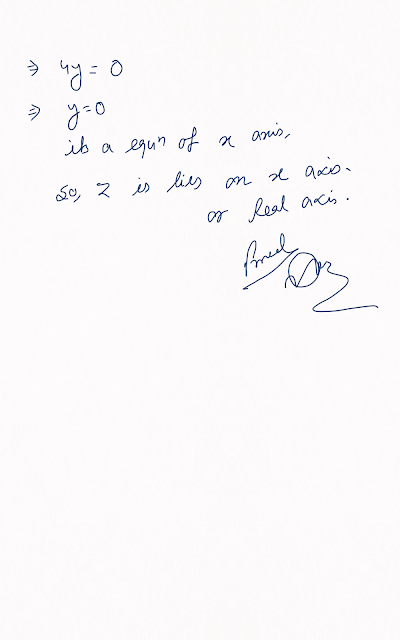 ⇒ 4y = 0
⇒ y=0
its a equⁿ of x axis,
So, z is lies on x axis.
or Real axis.
Proved